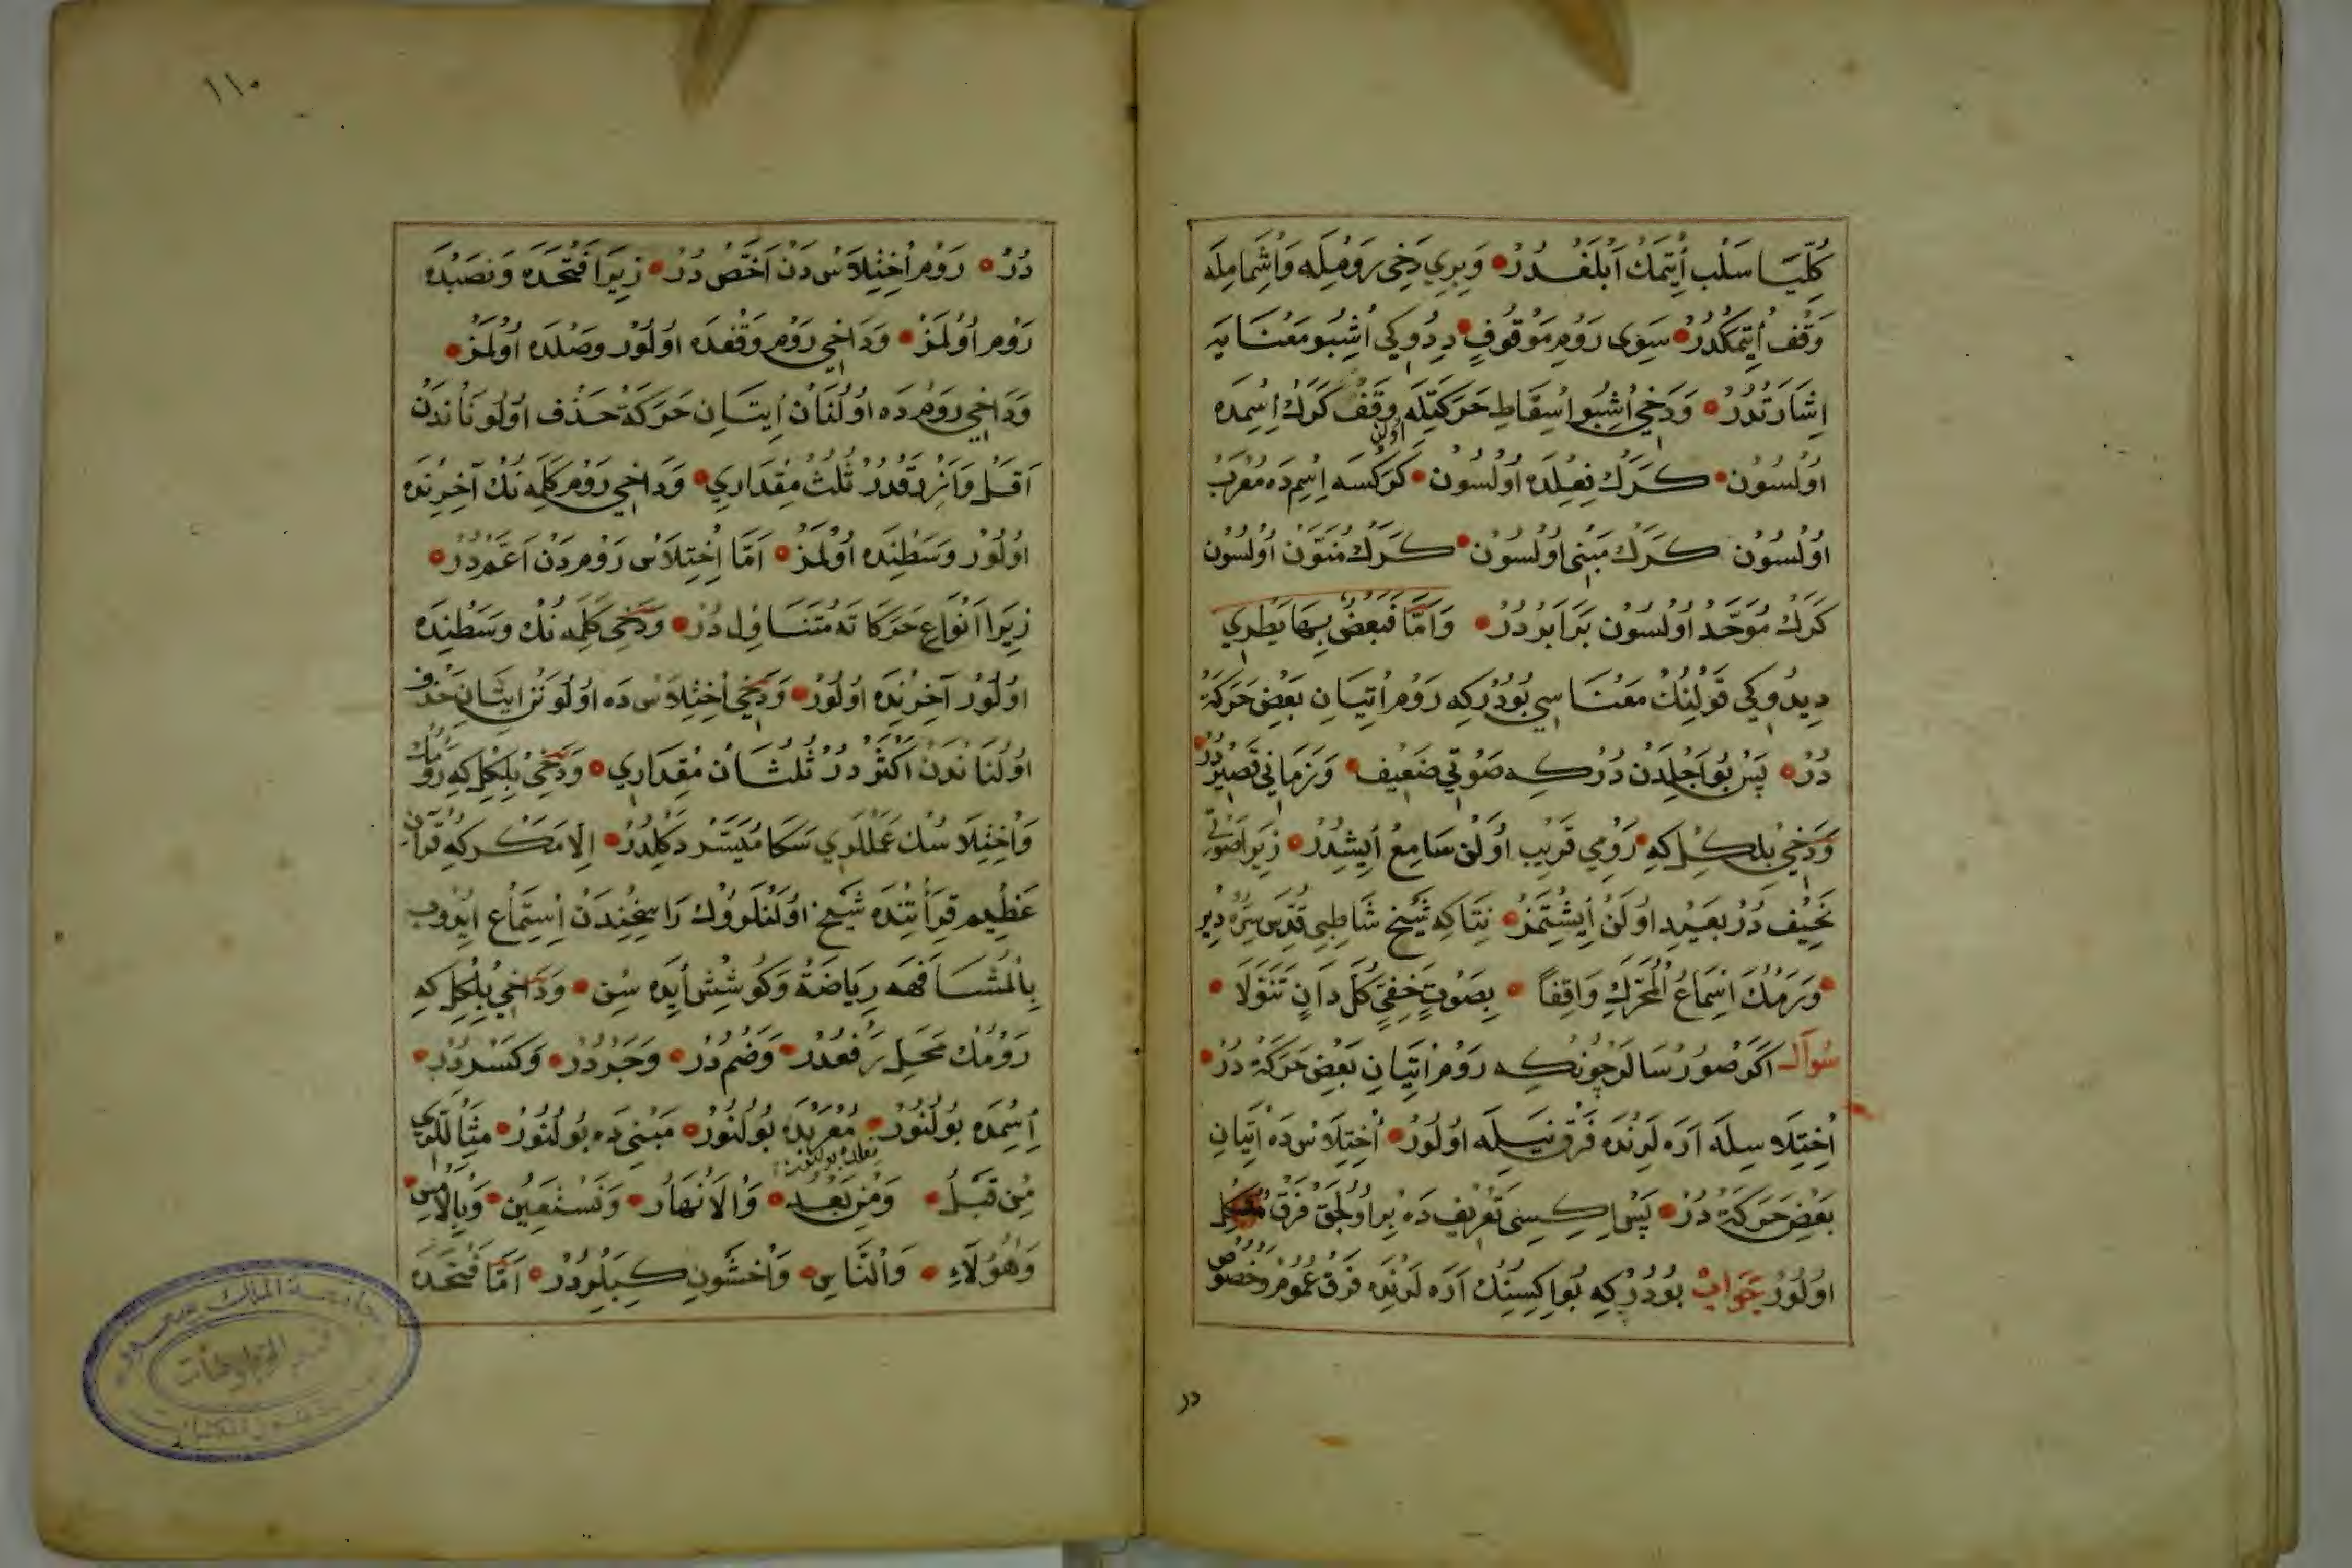 كُلِّيًا سَلْب اُيتمَك اَبلَغدُرْ وَبِرِي دَخِى رَوْمِلَه وَاِشْمَامِلَه
وَقْف اُيتمَكدُرْ سَوِى رَوْمِ مَوْقُوفٍ دِيدُوكِي اُشبُو مَعْنَايَه
اِشَارَتدُرْ وَدَخِي اُشبُو اِسقَاطِ حَرَكَتِلَه وَقْف كَرَك اِسمِدَه
اولن
اُولسُون كَرَك فِعْلِدَه اُولسُون كَرَكسَه اِسِم دَه مُعْرَبْ
اُولسُون كَرَك مَبنِى اُولسُون كَرَك مُنَوَّن اُولسُون
كَرَك مُوَحَّد اُولسُون بَرَابَردُرْ وَاَمَّا فَبَعْضُ
دِيدُوكِي قَوْلِنِك مَعْنَاسِي بُودُرْكِه رَوْم اِتيَانِ بَعْضِ حَرَكَة
دُرْ پَسْ بُو اَجِلدَن دُرْكِه صَوْتِي ضَعِيف وَزَمَانِي قَصِيردُرْ
وَدَخِي بِلكِل كِه رَوْمِي قَرِيب اُولَن سَامِعْ اِيشِدُرْ زِيرَا صَوْتِي
خَفِيف دُرْ بَعِيد اُولَن اِيشِتمَز نِتَاكِه شَيْخ شَاطِبِي قُدِّسَ سِرُّهُ دِير
وَرَوْمُكَ اِسمَاعُ الْمُحَرَّكِ وَاقِفاً بِصَوْتٍ خَفِيٍّ كُلَّ دَانٍ تَنَوَّلَا
سُوآل اَكَر صُورُرسَالَر چُونكِه رَوْم اِتيَانِ بَعْضِ حَرَكَة دُرْ
اُختِلَاسِلَه اَرَه لَرِندَه فَرْق نَيسِلَه اُولُور اُختِلَاس دَه اِتيَانِ
بَعْضِ حَرَكَة دُرْ پَسْ اِيكِيسِى تَعْرِيف دَه بِر اُولِجَق فَرْق مُشْكِل
اُولُور جَوَاب بُودُرْكِه بُو اِكِيسِنِك اَرَه لَرِندَه فَرْق عُمُوم وخُصُوص
در
١١٠
دُرْ رَوْم اُختِلَاس دَن اَخَصّ دُرْ زِيرَا فَتْحَدَه وَنَصْبدَه
رَوْم اُولمَز وَدَاخِي رَوْم وَقْفدَه اُولُور وَصْلدَه اُولمَز
وَدَاخِي رَوْم دَه اُولُنَان اِيتيَانِ حَرَكَة حَذْف اُولُونَاندَن
اَقَلّ وَاَزرَقدُرْ ثُلُث مِقْدَارِي وَدَاخِي رَوْم كَلِمَه نُك آخِرِندَه
اُولُور وَسَطِندَه اُولمَز اَمَّا اِختِلَاس رَوْم دَن اَعَمّ دُرْ
زِيرَا اَنوَاعِ حَرَكَاتَه مُتَنَاوِل دُرْ وَدَخِى كَلِمَه نُك وَسَطِندَه
اُولُور آخِرِندَه اُولُور وَدَخِي اُختِلَاس دَه اُولُونَن اِيتيَان حذف
اُولُنَاندَن اَكثَر دُرْ ثُلُثَان مِقْدَارِي وَدَخِي بِلكِل كِه رَوْمُك
وَاُختِلَاسُك عَمَللَرِي سَكَا مُيَسَّر دَكِلدُرْ اِلَّا مَكَركِه قُرآنِ
عَظِيم قِرَأَتِندَه شَيْخ اُولَنلَروُك رَاسِخِندَن اِستِمَاع اِيدُوب
بِالْمُشَافَهَه رِيَاضَة وَكُوشِش اَيدَه سِن وَدَاخِي بِلكِل كِه
رَوْمُك مَحَلِّ رَفْعدُرْ وَضَم دُرْ وَجَردُرْ وَكَسْردُرْ
اِسِمدَه بُولُنُورْ مُعْرَبدَه بُولُنُورْ مَبْنِى دَه بُولُنُورْ مِثَاللَرِي
فعلده بولنور
مِن قَبْلُ وَمِن بَعْدُ وَالْاَنْهَارُ وَنَسْتَعِينُ وَبِالْاَمْسِ
وَهٰؤُلَاءِ وَالنَّاسِ وَاخْشَوْنِ كِبِيلَردُرْ اَمَّا فَتْحَدَه
جامعة الملك سعود
قسم المخطوطات